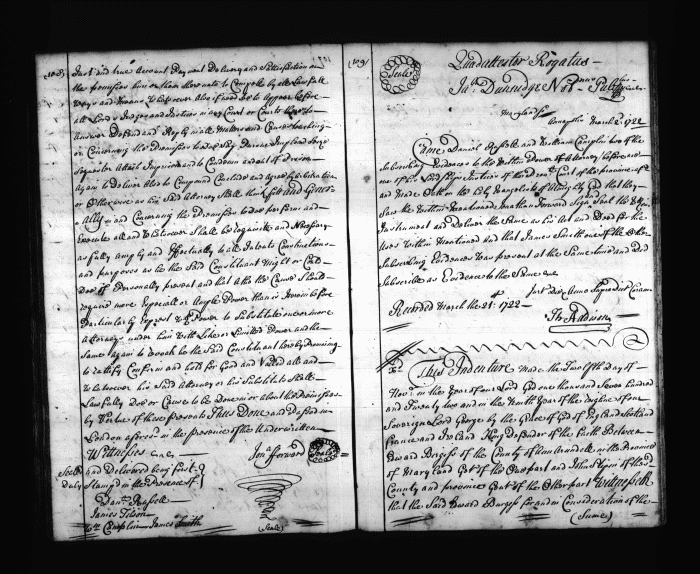 (128)
Just and true Account Payment Delivery and Satisfaction on
the premisses him or them thereunto to Compell by all Lawfull
Ways and Means Whatsoever Also if need be to Appear before
all Lords Judges and Justices in any Court or Courts there to
Answer Defend and Reply in all Matters and Causes touching
or Concerning the Premisses to do say Pursue Implead Seize
Sequester Attach Imprison and to Condemn and out of Prison
Again to Deliver Also to Compound Conclude and Agree by Arbitration
or Otherwise as his Said Attorney Shall think fit and Gener-
ally in and Concerning the Premisses to do perform and
Execute all and Whatsoever Shall be requisite and Necessary
as fully amply and Effectually to all Intents Constructions
and purposes as he the Said Constituant Might or Could
Doe if Personally present and that altho the Cause Should
require more Especiall or Ample Power than is herein before
Particularly Exprest Power to Substitute one or more
Attorneys under him With Like or Limited Power and the
Same again to Revoke he the Said Constituant hereby Promising
to ratify Confirm and hold for Good and Valled all and
Whatsoever his Said Attorney or his Substitute Shall
Lawfully Doe or Cause to be Done in or about the Premisses
by Vertue of these presents Thus Done and Passed in
London aforesd in the presence of the Underwritten
Witnesses
Sealed and Delivered being first
Duly Stampd in the Presence of
Jon. Forward
Seale
Danl. Russell
James Tilson
Wm. Camplin James Smith
(Seale)
(129)
Seale
Jno. Dunridge Nots. Publ
Maryland ss
March 2d. 1722
Came Daniel Russell and William Camplin two of the
Subscribing Evidences to the Within Power of Attorney before me
one of his Lordships Justices of the Court of this province
and Made Oath on the Holy Evangels of Almighty God that they
Saw the Within Mentioned Jonathan Forward Sign Seal the Within
Instrument and Deliver the Same as his Act and Deed for the
Uses Within Mentioned and that James Smith one of the Other
Subscribing Evidences Was present at the Same time and Did
Subscribe as Evidence to the Same
Jurt. Die Anno Supra dict Coram
Recorded March the 21st. 1722
Tho Addison
This Indenture Made the Twelfth Day of
Novr. in the Year of our Lord God one thousand Seven hundred
and Twenty two and in the Ninth Year of the Reigne of our
Sovereign Lord George by the Grace of God of England Scotland
France and Ireland King Defender of the Faith Between
Edward Burgess of the County of Ann Arundell in the Province
of Maryland Gt of the One part and John of the
County and province Gt of the Other part Witnesseth
that the Said Edward Burgess for and in Consideration of the
(Sume)